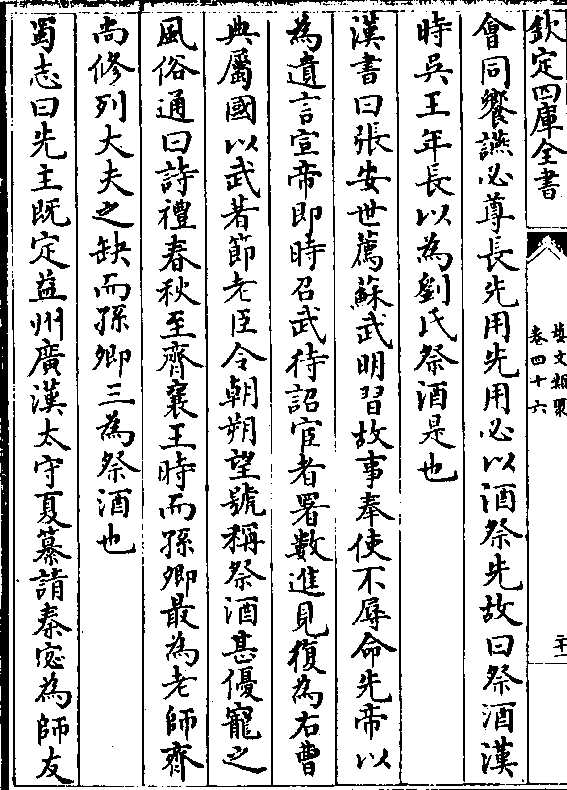 欽定四庫全書
藝文類聚
卷四十六
二十
會同饗讌必尊長先用先用必以酒祭先故曰祭酒漢
時吳王年長以為劉氏祭酒是也
漢書曰張安世薦蘇武明習故事奉使不辱命先帝以
為遺言宣帝即時召武待詔宦者署數進見復為右曹
典屬國以武著節老臣令朝朔望號稱祭酒甚優寵之
風俗通曰詩禮春秋至齊襄王時而孫卿最為老師齊
尚修列大夫之缺而孫卿三為祭酒也
蜀志曰先主既定益州廣漢太守夏纂請秦宓為師友